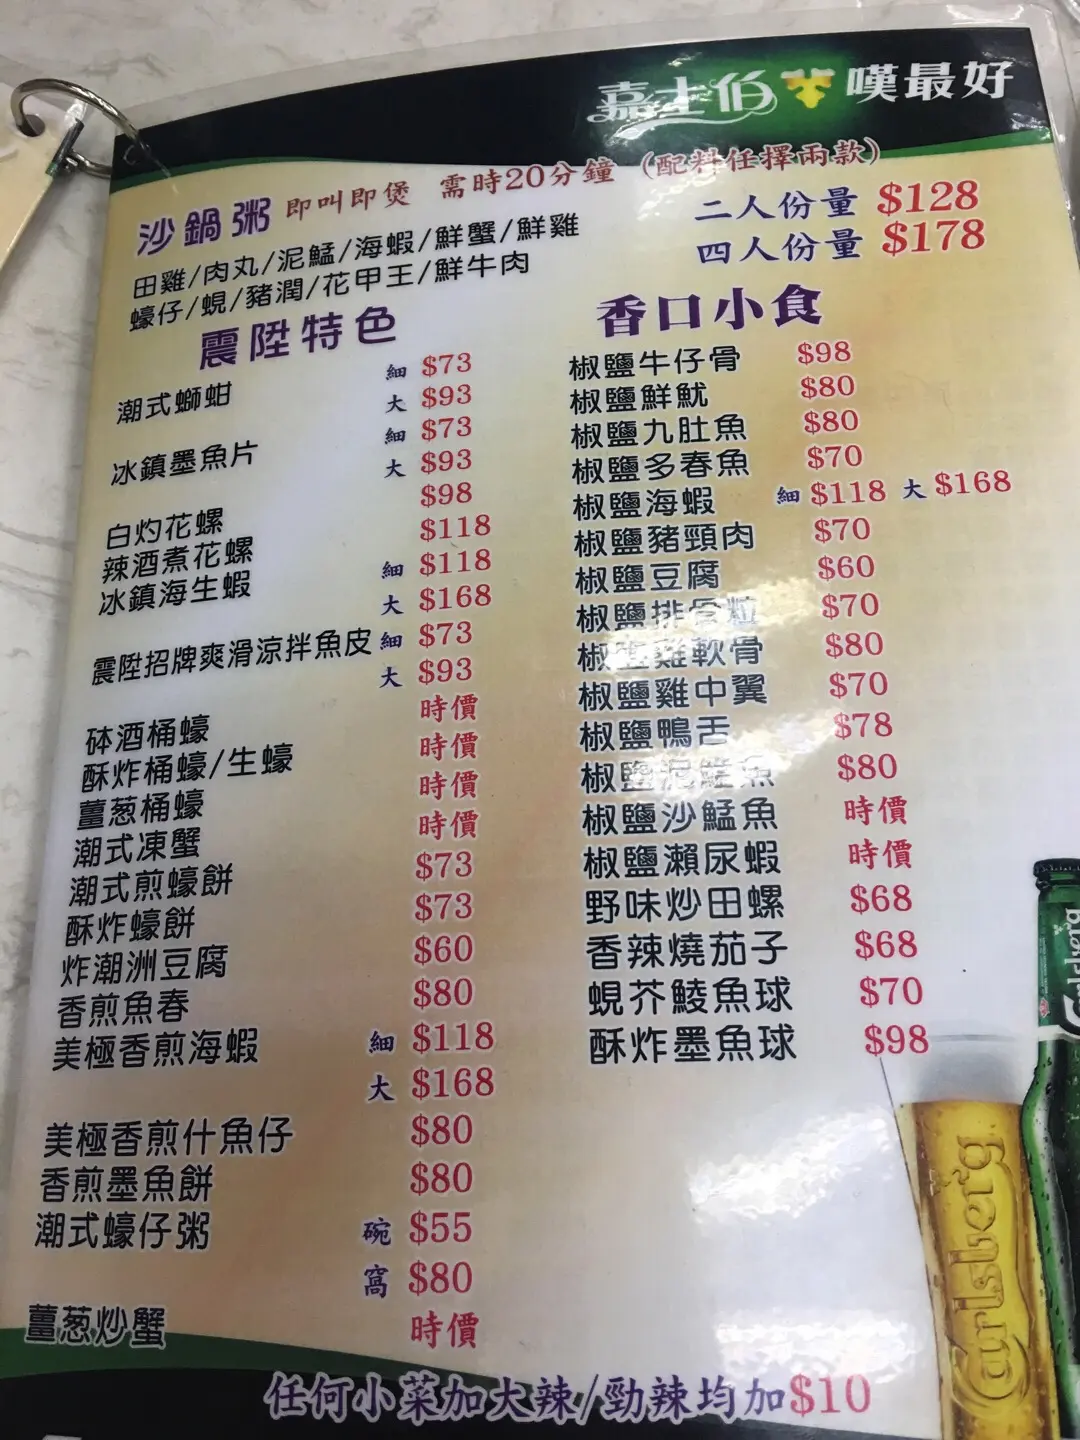 嘉士伯 嘆最好
沙鍋粥 即叫即煲 需時20分鐘 (配料任擇兩款)
田雞/肉丸/泥鯭/海蝦/鮮蟹/鮮雞
蠔仔/蜆/豬潤/花甲王/鮮牛肉
二人份量 $128
四人份量 $178
震陞特色
潮式螄蚶 細 $73
大 $93
冰鎮墨魚片 細 $73
大 $93
白灼花螺 $98
辣酒煮花螺 $118
冰鎮海生蝦 細 $118
大 $168
震陞招牌爽滑涼拌魚皮 細 $73
大 $93
砵酒桶蠔 時價
酥炸桶蠔/生蠔 時價
薑葱桶蠔 時價
潮式凍蟹 時價
潮式煎蠔餅 $73
酥炸蠔餅 $73
炸潮洲豆腐 $60
香煎魚春 $80
美極香煎海蝦 細 $118
大 $168
美極香煎什魚仔 $80
香煎墨魚餅 $80
潮式蠔仔粥 碗 $55
窩 $80
薑葱炒蟹 時價
香口小食
椒鹽牛仔骨 $98
椒鹽鮮魷 $80
椒鹽九肚魚 $80
椒鹽多春魚 $70
椒鹽海蝦 細 $118 大 $168
椒鹽豬頸肉 $70
椒鹽豆腐 $60
椒鹽排骨粒 $70
椒鹽雞軟骨 $80
椒鹽雞中翼 $70
椒鹽鴨舌 $78
椒鹽泥鯭魚 $80
椒鹽沙鯭魚 時價
椒鹽瀨尿蝦 時價
野味炒田螺 $68
香辣燒茄子 $68
蜆芥鯪魚球 $70
酥炸墨魚球 $98
Carlsberg
Carlsberg
任何小菜加大辣/勁辣均加$10